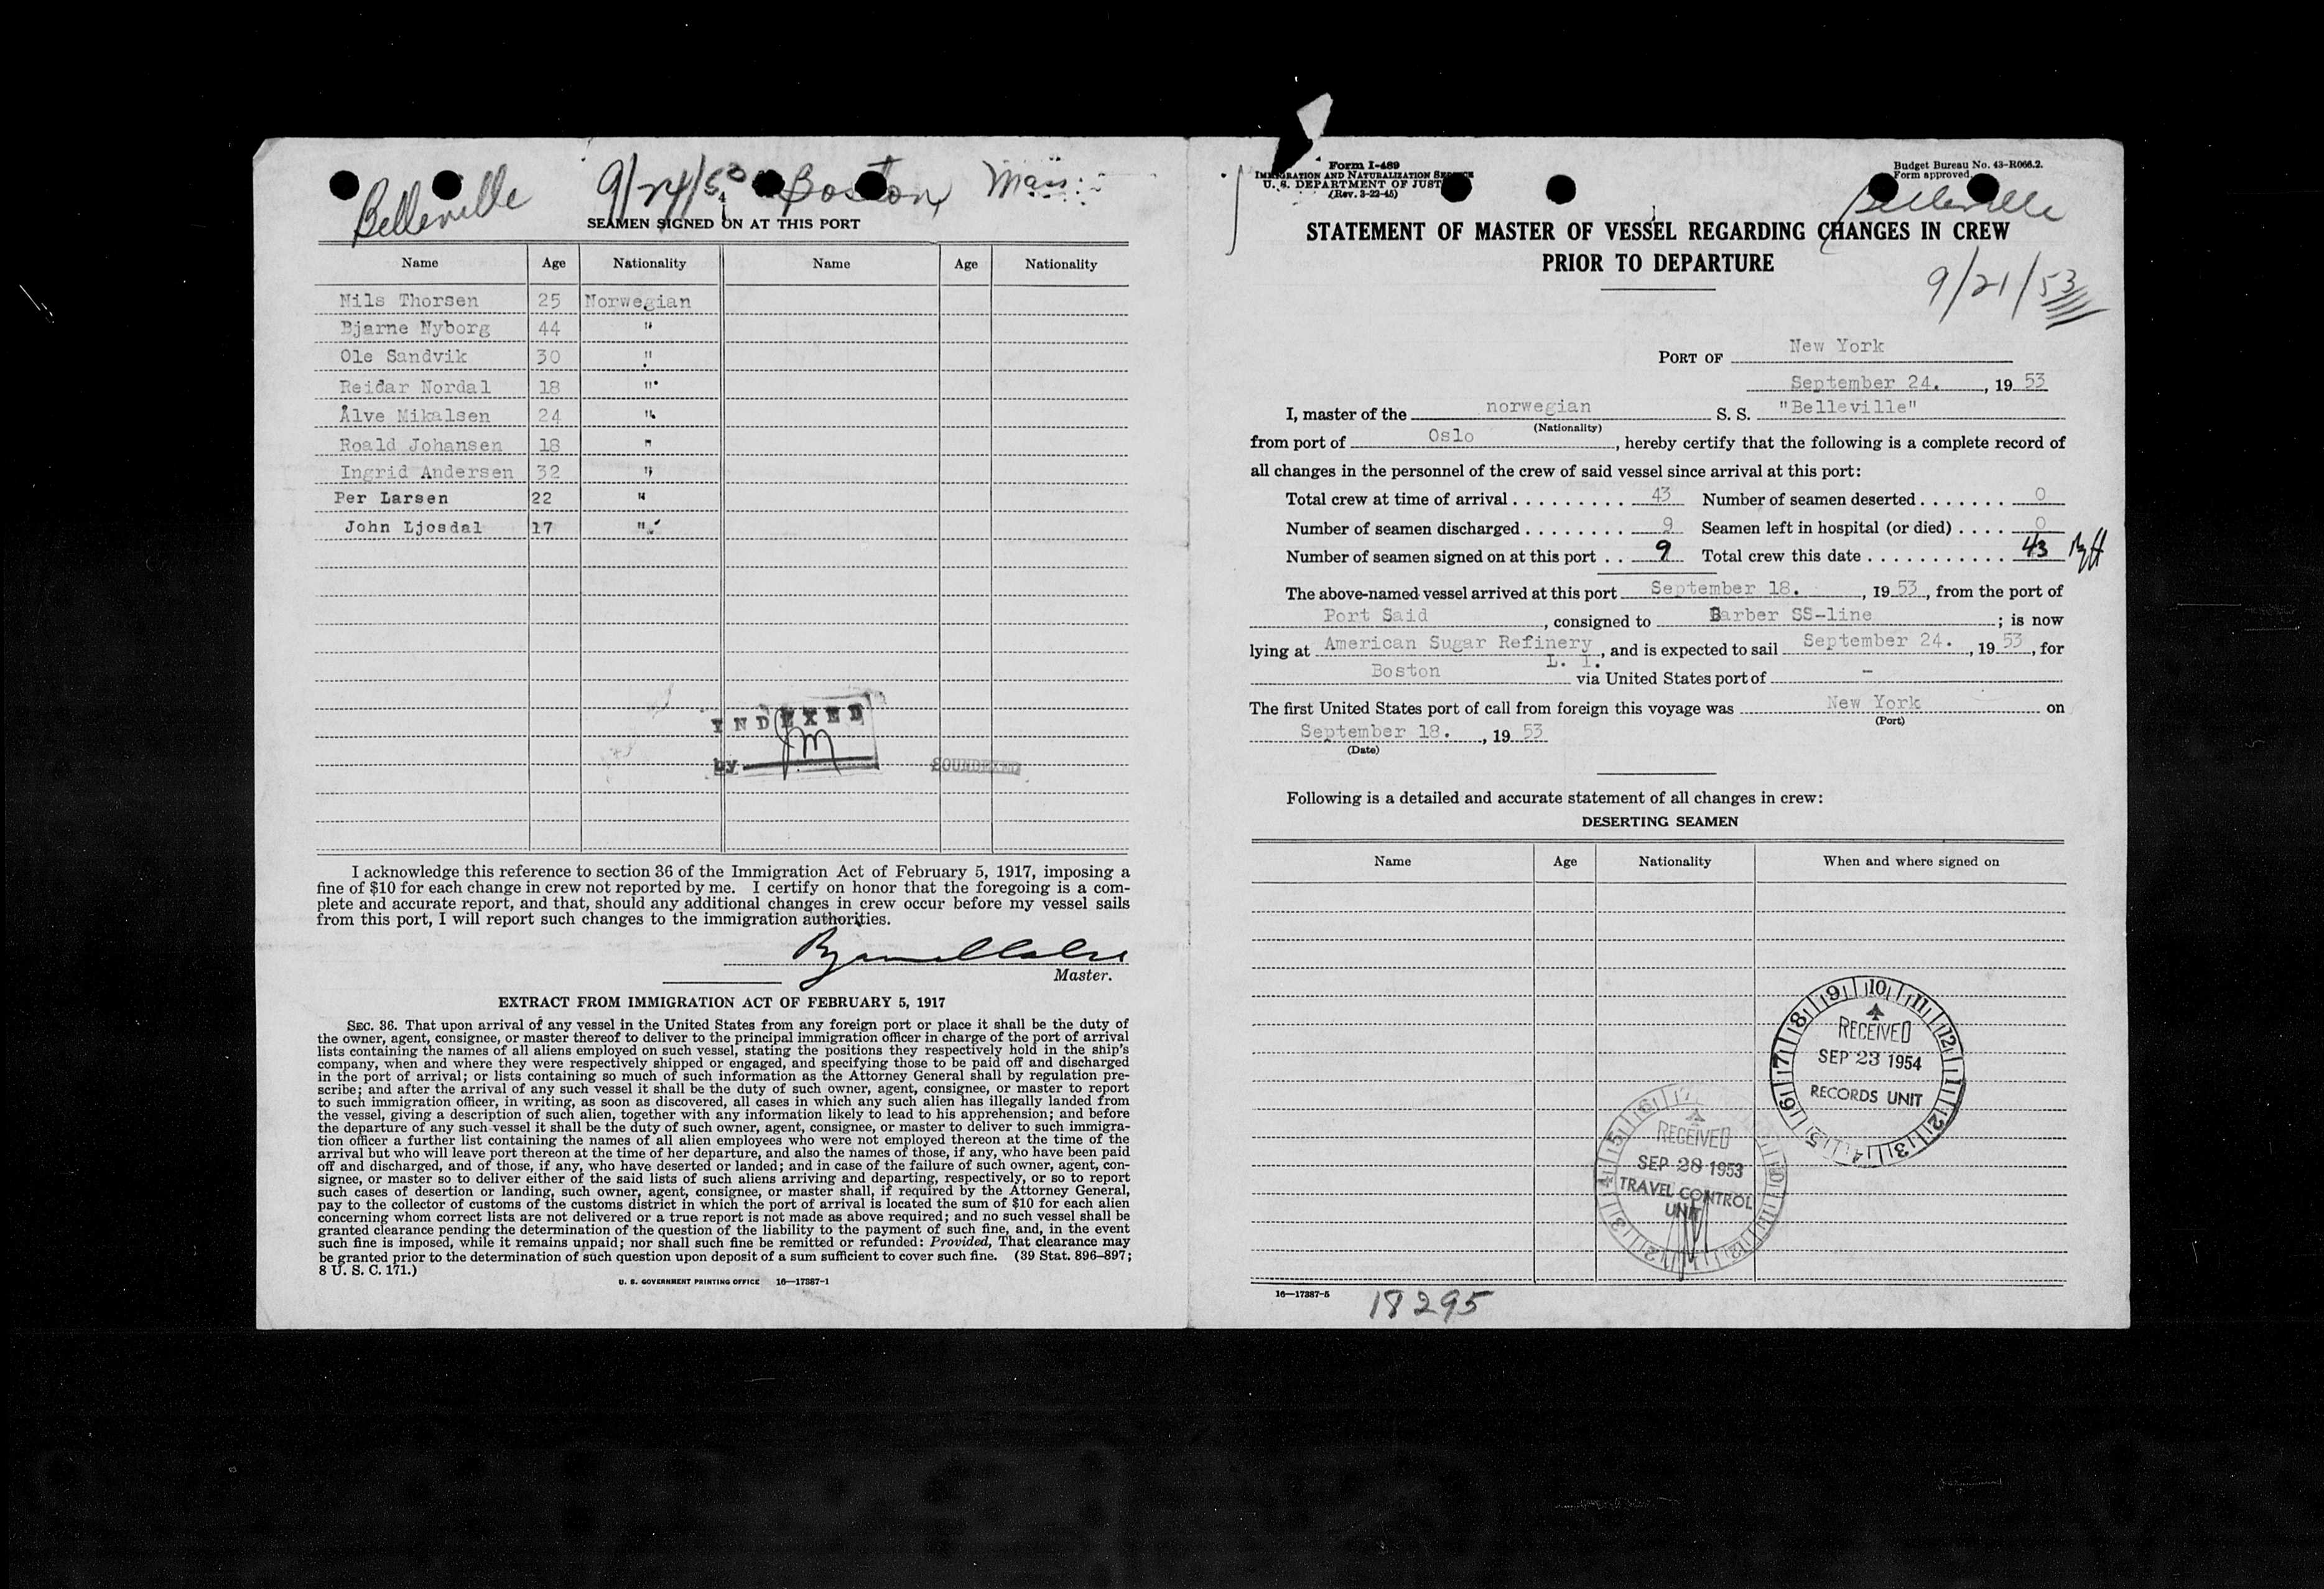 Belleville 9/24/53 Boston, Mass.
SEAMEN SIGNED ON AT THIS PORT
Name Age Nationality Name Age Nationality
Nils Thorsen 25 Norwegian
Bjarne Nyborg 44 "
Ole Sandvik 30 "
Reidar Nordal 18 "
Ålve Mikalsen 24 "
Roald Johansen 18 "
Ingrid Andersen 32 "
Per Larsen 22 "
John Ljosdal 17 "
INDEXED
by JM
SOUNDEXED
I acknowledge this reference to section 36 of the Immigration Act of February 5, 1917, imposing a
fine of $10 for each change in crew not reported by me. I certify on honor that the foregoing is a com-
plete and accurate report, and that, should any additional changes in crew occur before my vessel sails
from this port, I will report such changes to the immigration authorities.
Master.
EXTRACT FROM IMMIGRATION ACT OF FEBRUARY 5, 1917
SEC. 36. That upon arrival of any vessel in the United States from any foreign port or place it shall be the duty of
the owner, agent, consignee, or master thereof to deliver to the principal immigration officer in charge of the port of arrival
lists containing the names of all aliens employed on such vessel, stating the positions they respectively hold in the ship's
company, when and where they were respectively shipped or engaged, and specifying those to be paid off and discharged
in the port of arrival; or lists containing so much of such information as the Attorney General shall by regulation pre-
scribe; and after the arrival of any such vessel it shall be the duty of such owner, agent, consignee, or master to report
to such immigration officer, in writing, as soon as discovered, all cases in which any such alien has illegally landed from
the vessel, giving a description of such alien, together with any information likely to lead to his apprehension; and before
the departure of any such vessel it shall be the duty of such owner, agent, consignee, or master to deliver to such immigra-
tion officer a further list containing the names of all alien employees who were not employed thereon at the time of the
arrival but who will leave port thereon at the time of her departure, and also the names of those, if any, who have been paid
off and discharged, and of those, if any, who have deserted or landed; and in case of the failure of such owner, agent, con-
signee, or master so to deliver either of the said lists of such aliens arriving and departing, respectively, or so to report
such cases of desertion or landing, such owner, agent, consignee, or master shall, if required by the Attorney General,
pay to the collector of customs of the customs district in which the port of arrival is located the sum of $10 for each alien
concerning whom correct lists are not delivered or a true report is not made as above required; and no such vessel shall be
granted clearance pending the determination of the question of the liability to the payment of such fine, and, in the event
such fine is imposed, while it remains unpaid; nor shall such fine be remitted or refunded: Provided, That clearance may
be granted prior to the determination of such question upon deposit of a sum sufficient to cover such fine. (39 Stat. 896–897;
8 U. S. C. 171.)
U. S. GOVERNMENT PRINTING OFFICE 16—17387-1
Form I-489
IMMIGRATION AND NATURALIZATION SERVICE
U. S. DEPARTMENT OF JUST
(Rev. 3-22-45)
Budget Bureau No. 43-R066.2.
Form approved.
Belleville
STATEMENT OF MASTER OF VESSEL REGARDING CHANGES IN CREW
PRIOR TO DEPARTURE
9/21/53
PORT OF New York
September 24. , 19 53
I, master of the norwegian S. S. "Belleville"
(Nationality)
from port of Oslo , hereby certify that the following is a complete record of
all changes in the personnel of the crew of said vessel since arrival at this port:
Total crew at time of arrival . . . . . . . . . . 43 Number of seamen deserted . . . . . . . 0
Number of seamen discharged . . . . . . . . 9 Seamen left in hospital (or died) . . . . 0
Number of seamen signed on at this port . . 9 Total crew this date . . . . . . . . . . . 43
The above-named vessel arrived at this port September 18. , 19 53 , from the port of
Port Said , consigned to Barber SS-line ; is now
lying at American Sugar Refinery , and is expected to sail September 24. , 19 53 , for
L. I.
Boston via United States port of -
The first United States port of call from foreign this voyage was New York on
(Port)
September 18. , 19 53
(Date)
Following is a detailed and accurate statement of all changes in crew:
DESERTING SEAMEN
Name Age Nationality When and where signed on
9 10 11 12 1 2 3 4 5 6 7 8
RECEIVED
SEP 23 1954
RECORDS UNIT
RECEIVED
SEP 28 1953
TRAVEL CONTROL
UNIT
16—17387-5
18295